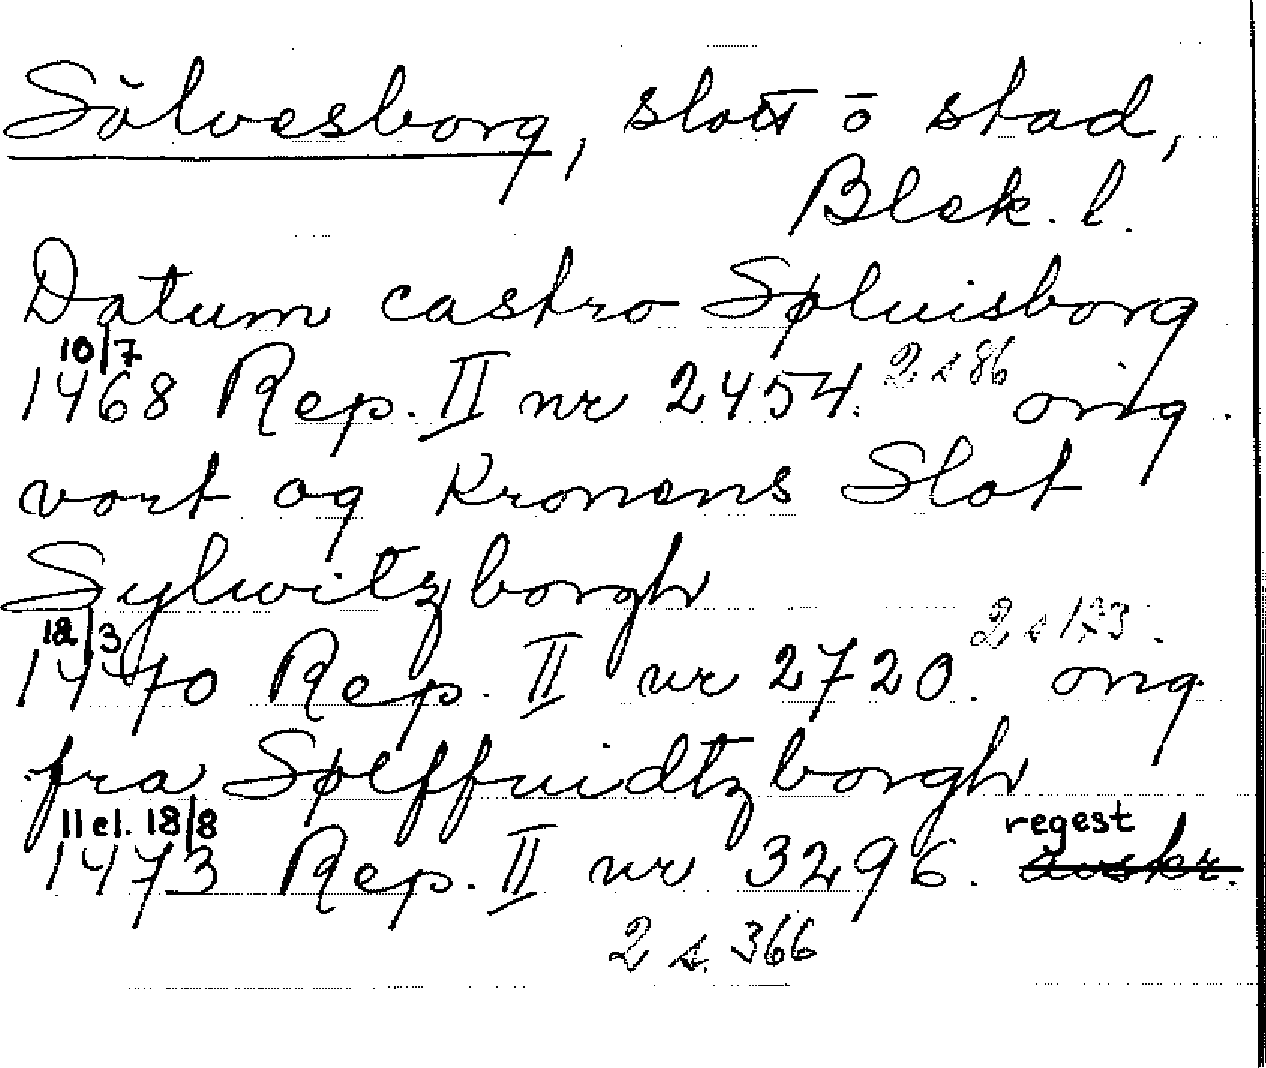 Sölvesborg, slott o stad,
Blek. l.
Datum castro Søluisborg
10/7
1468 Rep. II nr 2454. 2 s 86 orig.
vort og Kronens Slot
Sylwitzborgh
12/3
1470 Rep. II nr 2720. 2 s 173. orig
fra Sølffuidtzborgh
11 el. 18/8 regest
1473 Rep. II nr 3296. avskr.
2 s. 366